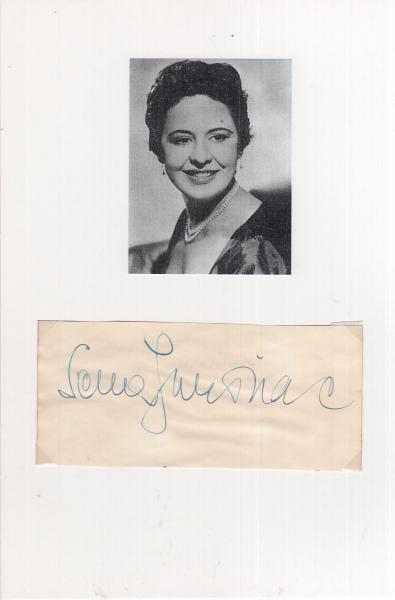 Sena Jurinac